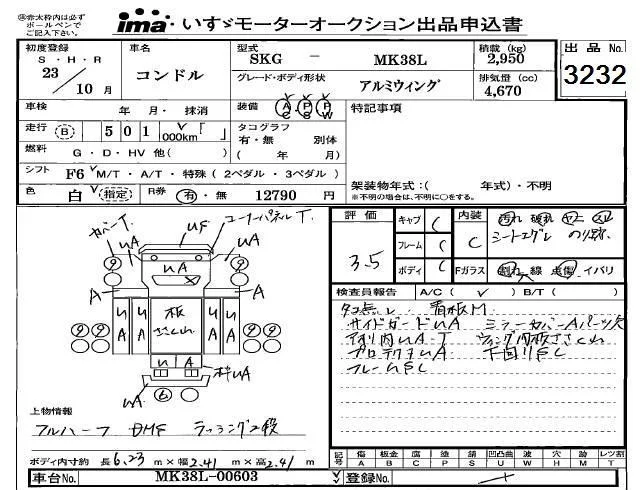 ※赤太枠内は必ず
ボールペンで
ご記入下さい。
ima いすゞモーターオークション出品申込書
初度登録
S・H・R
23/10月
車名
コンドル
型式
SKG － MK38L
グレード・ボディ形状
アルミウィング
積載 (kg)
2,950
排気量 (cc)
4,670
出品No.
3232
車検 年 月・ 抹消
装備 A/C P/S P/W
特記事項
走行 B 501,000km「 」
タコグラフ
有・無 別体
( 年 月)
燃料 G・D・HV 他( )
シフト F6 M/T・A/T・特殊 ( 2ペダル・3ペダル )
色 白 (指定) R券 有・無 12790 円
架装物年式：( 年式)・不明
※不明の場合は、不明に○をする。
評価
3.5
キャブ C
フレーム C
ボディ C
内装 C
汚れ 破れ ヤニ スレ
シートエグレ のり跡
Fガラス 割れ 線 点傷 イバリ
検査員報告 A/C ( ✓ ) B/T ( )
タコ無し 看板M
サイドガードUA ミラーカバーAパーツ欠
アオリ内UA.T ウィング内板ささくれ
プロテクタUA 下回りSC
フレームSC
カバーT
UF
コーナーパネルT.
UA
UA
UA
9
9
9
9
A
A
UA
UA
板ささくれ
UA
UA
U A
UA
6
上物情報
フルハーフ DMF ラッシング2段
ボディ内寸約 長 6.23 m×幅 2.41 m×高 2.41 m
記号 傷 A 板金 B 腐 C 塗 P 錆 S 凹凸曲 U 波 W 穴 H 跡 M レツ割 T
車台No. MK38L-00603
登録No.